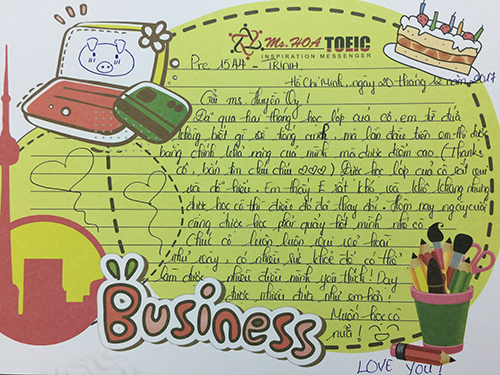 Ms. HOA TOEIC
INSPIRATION MESSENGER
Pre 1544 - TRINH
Hồ Chí Minh, ngày 20 tháng 12 năm 2017
Gửi ms. Huyền
Đã qua hai tháng học lớp của cô, em từ đứa
không biết gì về tiếng anh, mà lần đầu tiên em thi được
bằng chính khả năng của mình mà được điểm cao. (Thanks
cô, bắn tim chíu chíu) Được học lớp của cô rất vui
và dễ hiểu. Em thấy E rất khó và khô khan nhưng
được học cô thì điều đó đã thay đổi. Hôm nay ngày cuối
cùng được học phải quậy hết mình
Chúc cô luôn luôn vui vẻ hoài
như vậy, có nhiều sức khoẻ để có thể
làm được nhiều điều mình yêu thích! Dạy
được nhiều đứa như em hơi!
Muốn học cô
nữa!
BUSINESS
LOVE YOU!